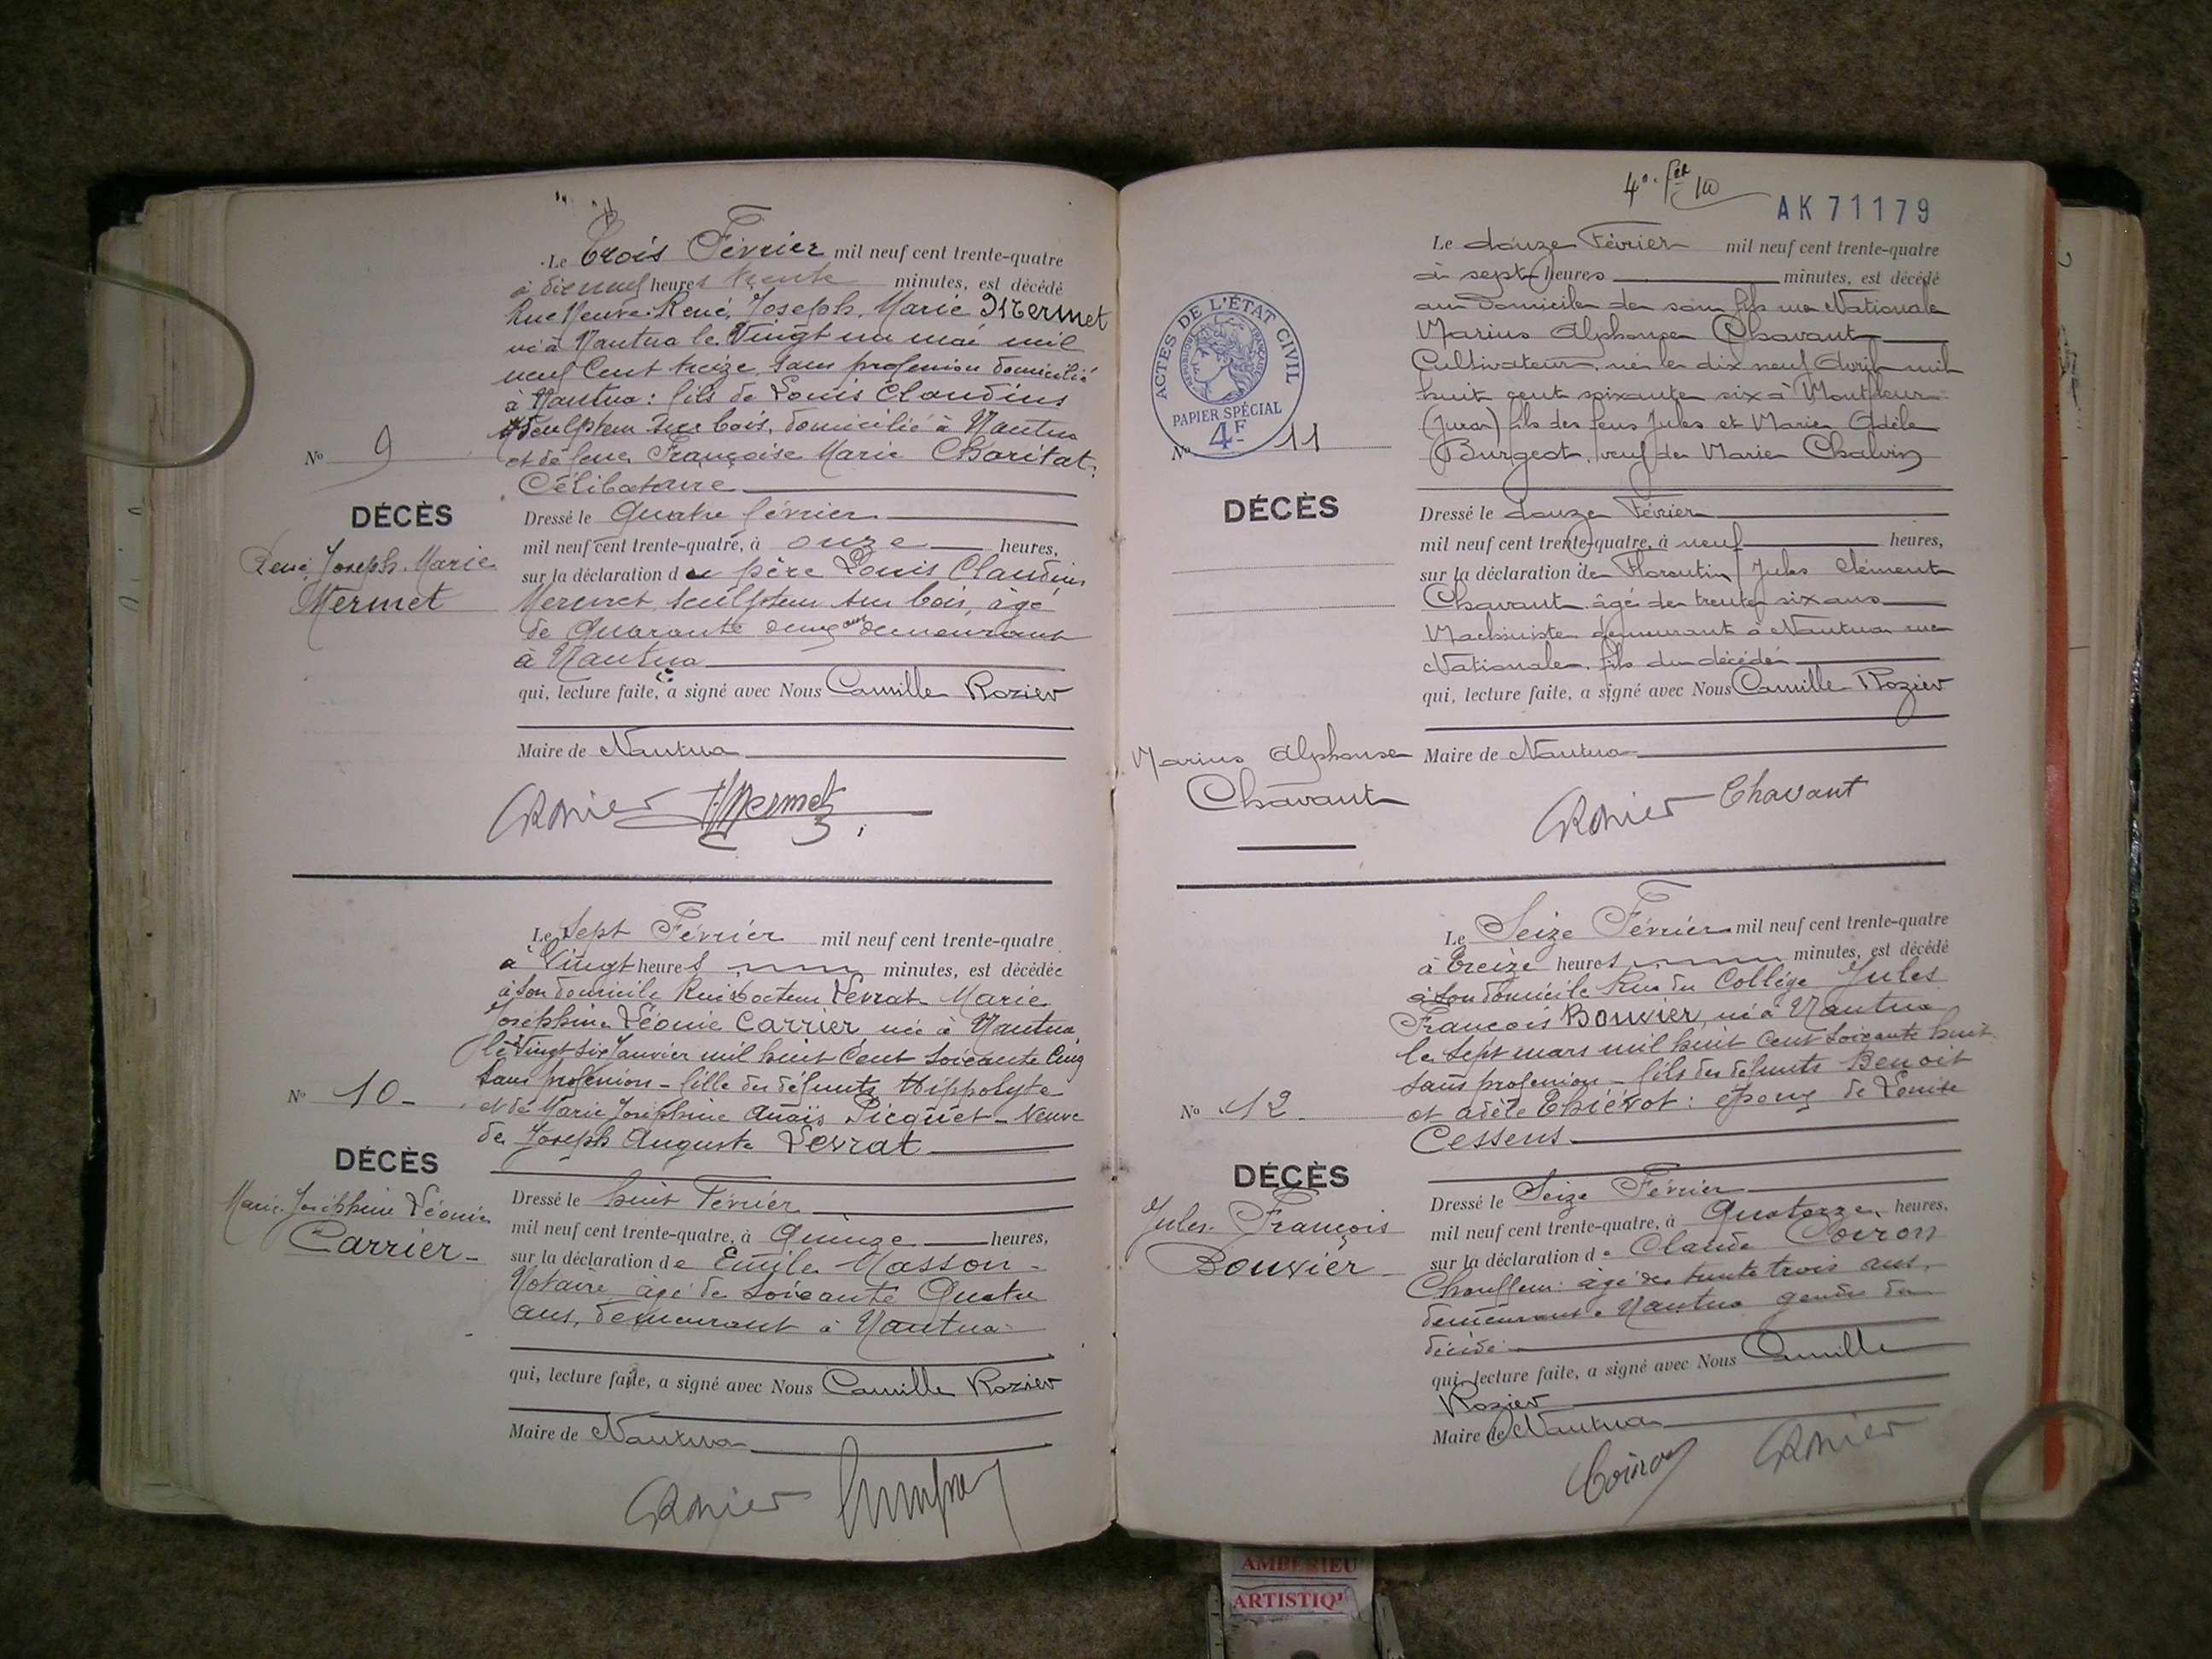 Le Trois Février mil neuf cent trente-quatre
à dix neuf heures trente minutes, est décédé
Rue Neuve René, Joseph, Marie Mermet
né à Nantua le Vingt un mai mil
neuf Cent treize, sans profession domicilié
à Nantua : fils de Louis Claudius
Sculpteur sur bois, domicilié à Nantua
No 9
et de feue Françoise Marie Charitat.
Célibataire
DÉCÈS
René, Joseph, Marie
Mermet
Dressé le Quatre février
mil neuf cent trente-quatre, à onze heures,
sur la déclaration du père Louis Claudius
Mermet, sculpteur sur bois, âgé
de Quarante deux ans demeurant
à Nantua
qui, lecture faite, a signé avec Nous Camille Rozier
Maire de Nantua
CRozier Mermet
Le Sept Février mil neuf cent trente-quatre
à Vingt heures minutes, est décédée
à son domicile Rue Docteur Levrat Marie
Joséphine Léonie Carrier née à Nantua
le Vingt Six Janvier mil huit Cent soixante Cinq
sans profession - fille des défunts Hippolyte
No 10 -
et de Marie Joséphine Anaïs Picquet - Veuve
de Joseph Auguste Levrat
DÉCÈS
Marie Joséphine Léonie
Carrier -
Dressé le huit Février
mil neuf cent trente-quatre, à Quinze heures,
sur la déclaration de Emile Masson -
Notaire âgé de soixante Quatre
ans, demeurant à Nantua
qui, lecture faite, a signé avec Nous Camille Rozier
Maire de Nantua
CRozier
AK 71179
Le douze Février mil neuf cent trente-quatre
à sept heures minutes, est décédé
au domicile de son fils rue Nationale
Marius Alphonse Chavant
Cultivateur, né le dix neuf Avril mil
huit cent soixante six à Montfleur
(Jura) fils des feus Jules et Marie Adèle
Burgeot, veuf de Marie Chalvin
ACTES DE L'ÉTAT CIVIL
RÉPUBLIQUE FRANÇAISE
PAPIER SPÉCIAL
4F
No 11
DÉCÈS
Marius Alphonse
Chavant
Dressé le douze Février
mil neuf cent trente-quatre, à neuf heures,
sur la déclaration de Florentin Jules Clément
Chavant âgé de trente six ans
Machiniste demeurant à Nantua rue
Nationale, fils du décédé
qui, lecture faite, a signé avec Nous Camille Rozier
Maire de Nantua
CRozier Chavant
Le Seize Février mil neuf cent trente-quatre
à Treize heures minutes, est décédé
à son domicile Rue du Collège Jules
François Bouvier, né à Nantua
le Sept mars mil huit Cent soixante huit
sans profession - fils des défunts Benoit
No 12
et Adèle Thiévot : époux de Louise
Cessens
DÉCÈS
Jules François
Bouvier
Dressé le Seize Février
mil neuf cent trente-quatre, à Quatorze heures,
sur la déclaration de Claude Coiron
Chauffeur âgé de trente trois ans,
demeurant à Nantua gendre du
décédé
qui, lecture faite, a signé avec Nous Camille
Rozier
Maire de Nantua
Coiron CRozier
AMBERIEU
ARTISTIQ